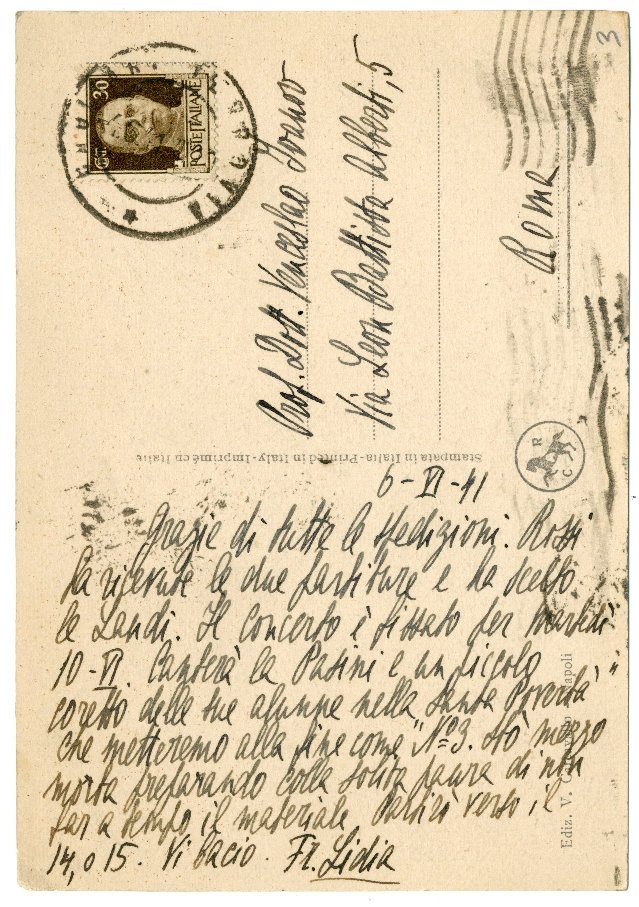 3
CENT. 30
POSTE ITALIANE
Prof. Dott. Venceslao Ivanov
Via Leon Battista Alberti, 5
Roma
Stampata in Italia - Printed in Italy - Imprimé en Italie
R C
Ediz. V. Napoli
6-VI-41
Grazie di tutte le spedizioni. Rossi
ha ricevute le due partiture e ha scelto
le Laudi. Il concerto è fissato per martedì
10-VI. Canterà la Pasini e un piccolo
coretto delle sue alunne nella "Santa Povertà"
che metteremo alla fine come "No 3. Stò mezzo
morta preparando colla solita paura di non
far a tempo il materiale. verso il
14, o 15. Vi bacio. Fr. Lidia